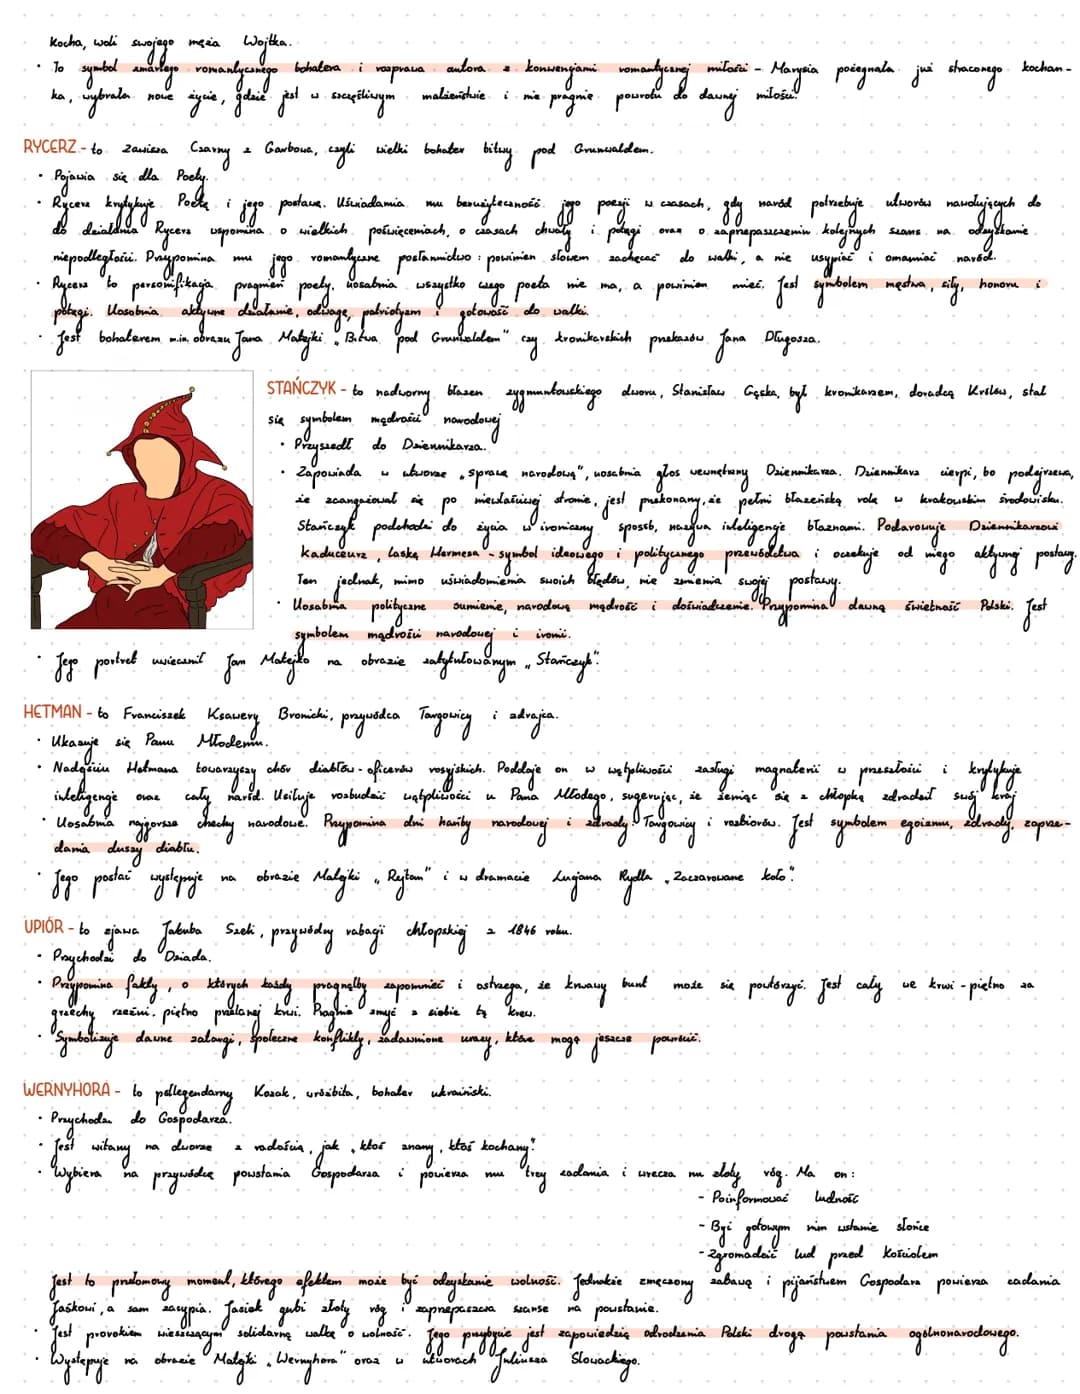 kocha, woli swojego męża Wojtka.
• To symbol zmarłego romantycznego bohatera i rozprawa autora z konwencjami romantycznej miłości - Marysia pożegnała już straconego kochan-
ka, wybrała nowe życie, gdzie jest w szczęśliwym małżeństwie i nie pragnie powrotu do dawnej miłości.
RYCERZ - to Zawisza Czarny z Garbowa, czyli wielki bohater bitwy pod Grunwaldem.
• Pojawia się dla Poety.
• Rycerz krytykuje Poetę i jego postawę. Uświadamia mu bezużyteczność jego poezji w czasach, gdy naród potrzebuje utworów nawołujących do
do działania Rycerz wspomina o wielkich poświęceniach, o czasach chwały i potęgi oraz o zaprzepaszczeniu kolejnych szans na odzyskanie
niepodległości. Przypomina mu jego romantyczne posłannictwo: powinien słowem zachęcać do walki, a nie usypiać i omamiać naród.
• Rycerz to personifikacja pragnień poety, uosabnia wszystko czego poeta nie ma, a powinien mieć. Jest symbolem męstwa, siły, honoru i
potęgi. Uosabnia aktywne działanie, odwagę, patriotyzm i gotowość do walki.
• Jest bohaterem m.in. obrazu Jana Matejki „Bitwa pod Grunwaldem" czy kronikarskich przekazów Jana Długosza.
STAŃCZYK - to nadworny błazen zygmuntowskiego dworu, Stanisław Gąska, był kronikarzem, doradcą Królów, stał
się symbolem mądrości narodowej
• Przyszedł do Dziennikarza.
• Zapowiada w utworze „sprawę narodową", uosabnia głos wewnętrzny Dziennikarza. Dziennikarz cierpi, bo podejrzewa,
że zaangażował się po niewłaściwej stronie, jest przekonany, że pełni błazeńską rolę w krakowskim środowisku.
Stańczyk podchodzi do życia w ironiczny sposób, nazywa inteligencję błaznami. Podarowuje Dziennikarzowi
Kaduceusz, laskę Hermesa - symbol ideowego i politycznego przewództwa i oczekuje od niego aktywnej postawy.
Ten jednak, mimo uświadomienia swoich błędów, nie zmienia swojej postawy.
• Uosabnia polityczne sumienie, narodową mądrość i doświadczenie. Przypomina dawną świetność Polski. Jest
symbolem mądrości narodowej i ironii.
• Jego portret uwiecznił Jan Matejko na obrazie zatytułowanym „Stańczyk".
HETMAN - to Franciszek Ksawery Bronicki, przywódca Targowicy i zdrajca.
• Ukazuje się Panu Młodemu.
• Nadejściu Hetmana towarzyszy chór diabłów - oficerów rosyjskich. Poddaje on w wątpliwości zasługi magnaterii w przeszłości i krytykuje
inteligencję oraz cały naród. Usiłuje rozbudzić wątpliwości u Pana Młodego, sugerując, że żeniąc się z chłopką zdradził swój kraj
• Uosabnia najgorsze chechy narodowe. Przypomina dni hańby narodowej i zdrady: Targowicy i rozbiorów. Jest symbolem egoizmu, zdrady, zaprze-
dania duszy diabłu.
• Jego postać występuje na obrazie Matejki „Rejtan" i w dramacie Lucjana Rydla „Zaczarowane koło".
UPIÓR - to zjawa Jakuba Szeli, przywódcy rabacji chłopskiej z 1846 roku.
• Przychodzi do Dziada.
• Przypomina fakty, o których każdy pragnąłby zapomnieć i ostrzega, że krwawy bunt może się powtórzyć. Jest cały we krwi - piętno za
grzechy rzezi, piętno przelanej krwi. Pragnie zmyć z siebie tę krew.
• Symbolizuje dawne zatargi, społeczne konflikty, zadawnione urazy, które mogą jeszcze powrócić.
WERNYHORA - to półlegendarny Kozak, wróżbita, bohater ukraiński.
• Przychodzi do Gospodarza.
• Jest witany na dworze z radością, jak „ktoś znany, ktoś kochany".
• Wybiera na przywódcę powstania Gospodarza i powierza mu trzy zadania i wręcza mu złoty róg. Ma on:
- Poinformować ludność
- Być gotowym nim wstanie słońce
- Zgromadzić lud przed Kościołem
Jest to przełomowy moment, którego efektem może być odzyskanie wolności. Jednakże zmęczony zabawą i pijaństwem Gospodarz powierza zadania
Jaśkowi, a sam zasypia. Jasiek gubi złoty róg i zaprzepaszcza szanse na powstanie.
• Jest prorokiem wieszczącym solidarną walkę o wolność. Jego przybycie jest zapowiedzią odrodzenia Polski drogą powstania ogólnonarodowego.
• Występuje na obrazie Matejki „Wernyhora" oraz w utworach Juliusza Słowackiego.